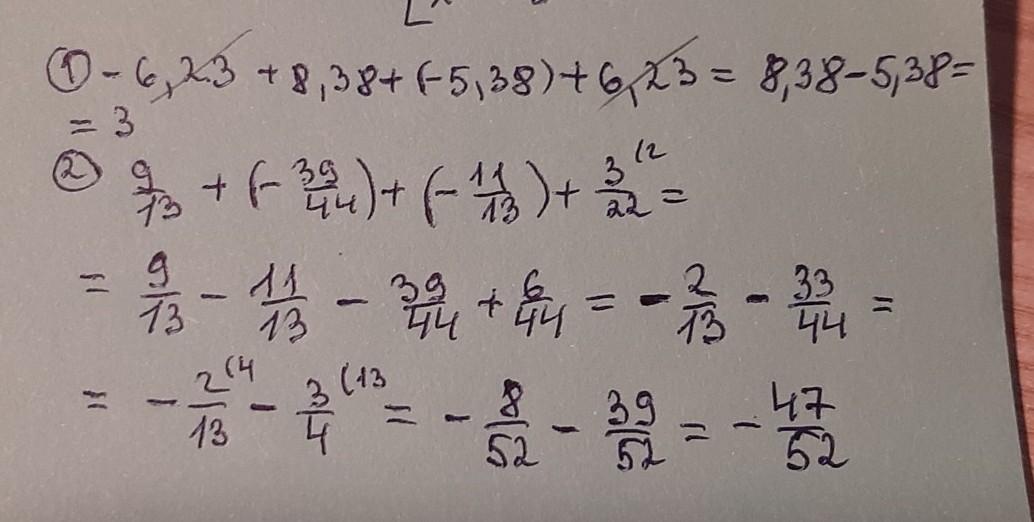 ① - 6,23 + 8,38 + (-5,38) + 6,23 = 8,38 - 5,38 =
= 3
② 9/13 + (- 39/44) + (- 11/13) + 3/22 (2 =
= 9/13 - 11/13 - 39/44 + 6/44 = - 2/13 - 33/44 =
= - 2/13 (4 - 3/4 (13 = - 8/52 - 39/52 = - 47/52